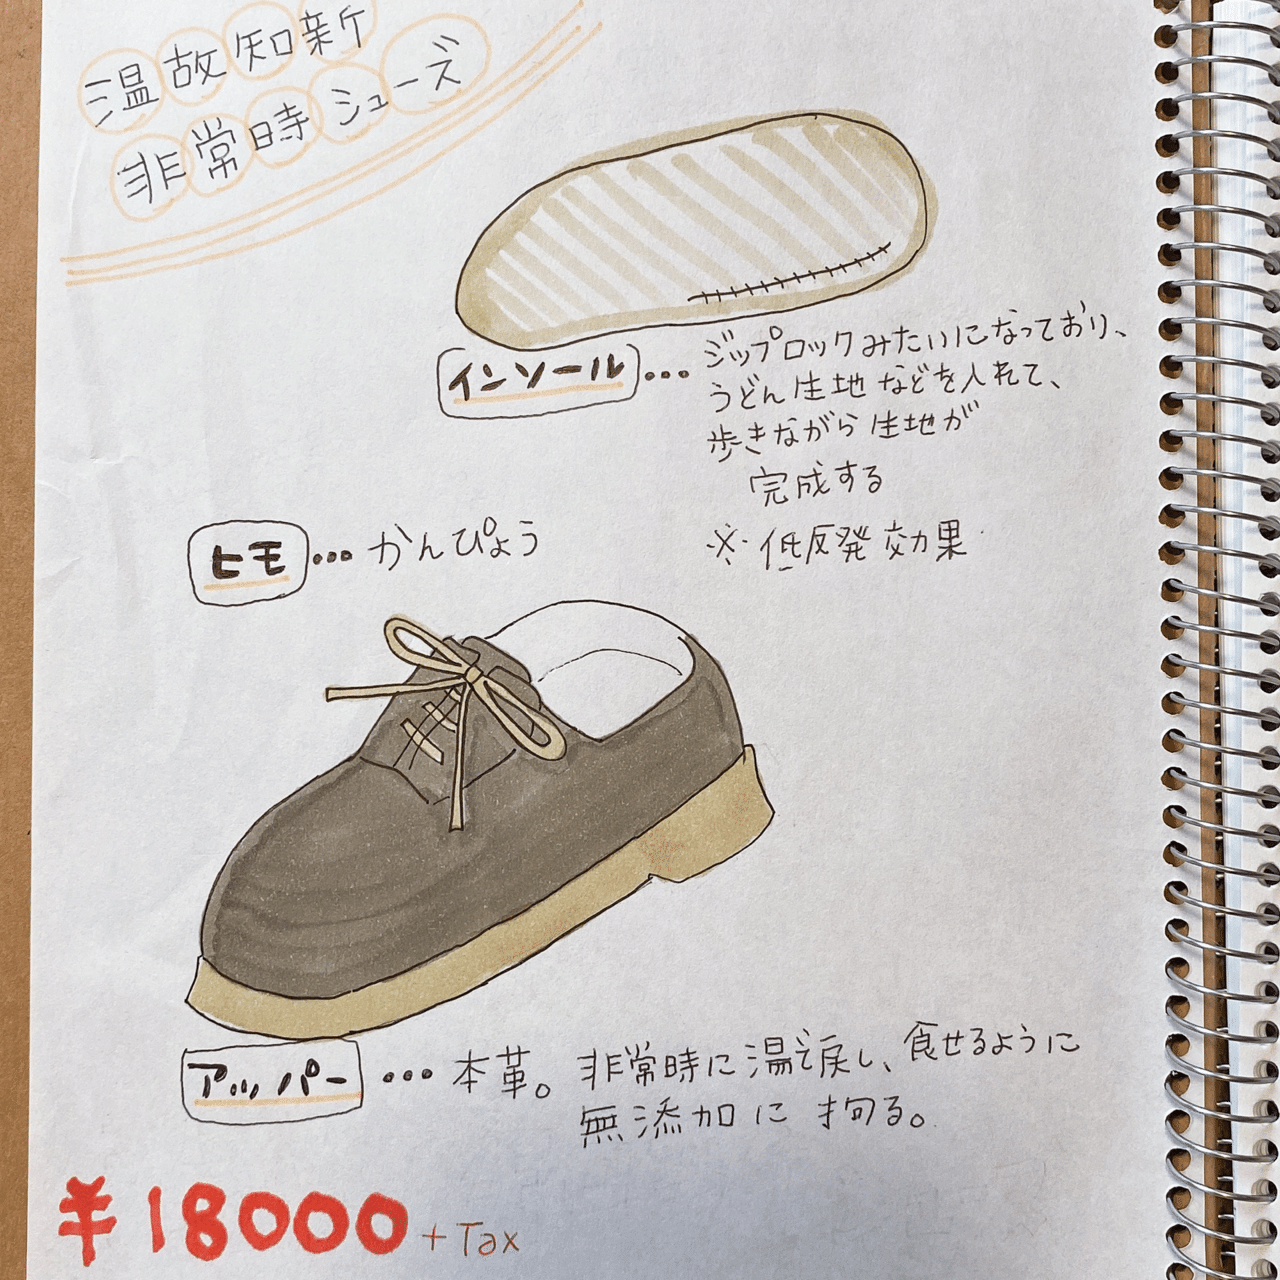 温故知新
非常時シューズ
インソール…ジップロックみたいになっており、
うどん生地などを入れて、
歩きながら生地が
完成する
※低反発効果
ヒモ…かんぴょう
アッパー…本革。非常時に湯で戻し、食せるように
無添加に拘る。
¥18000+Tax